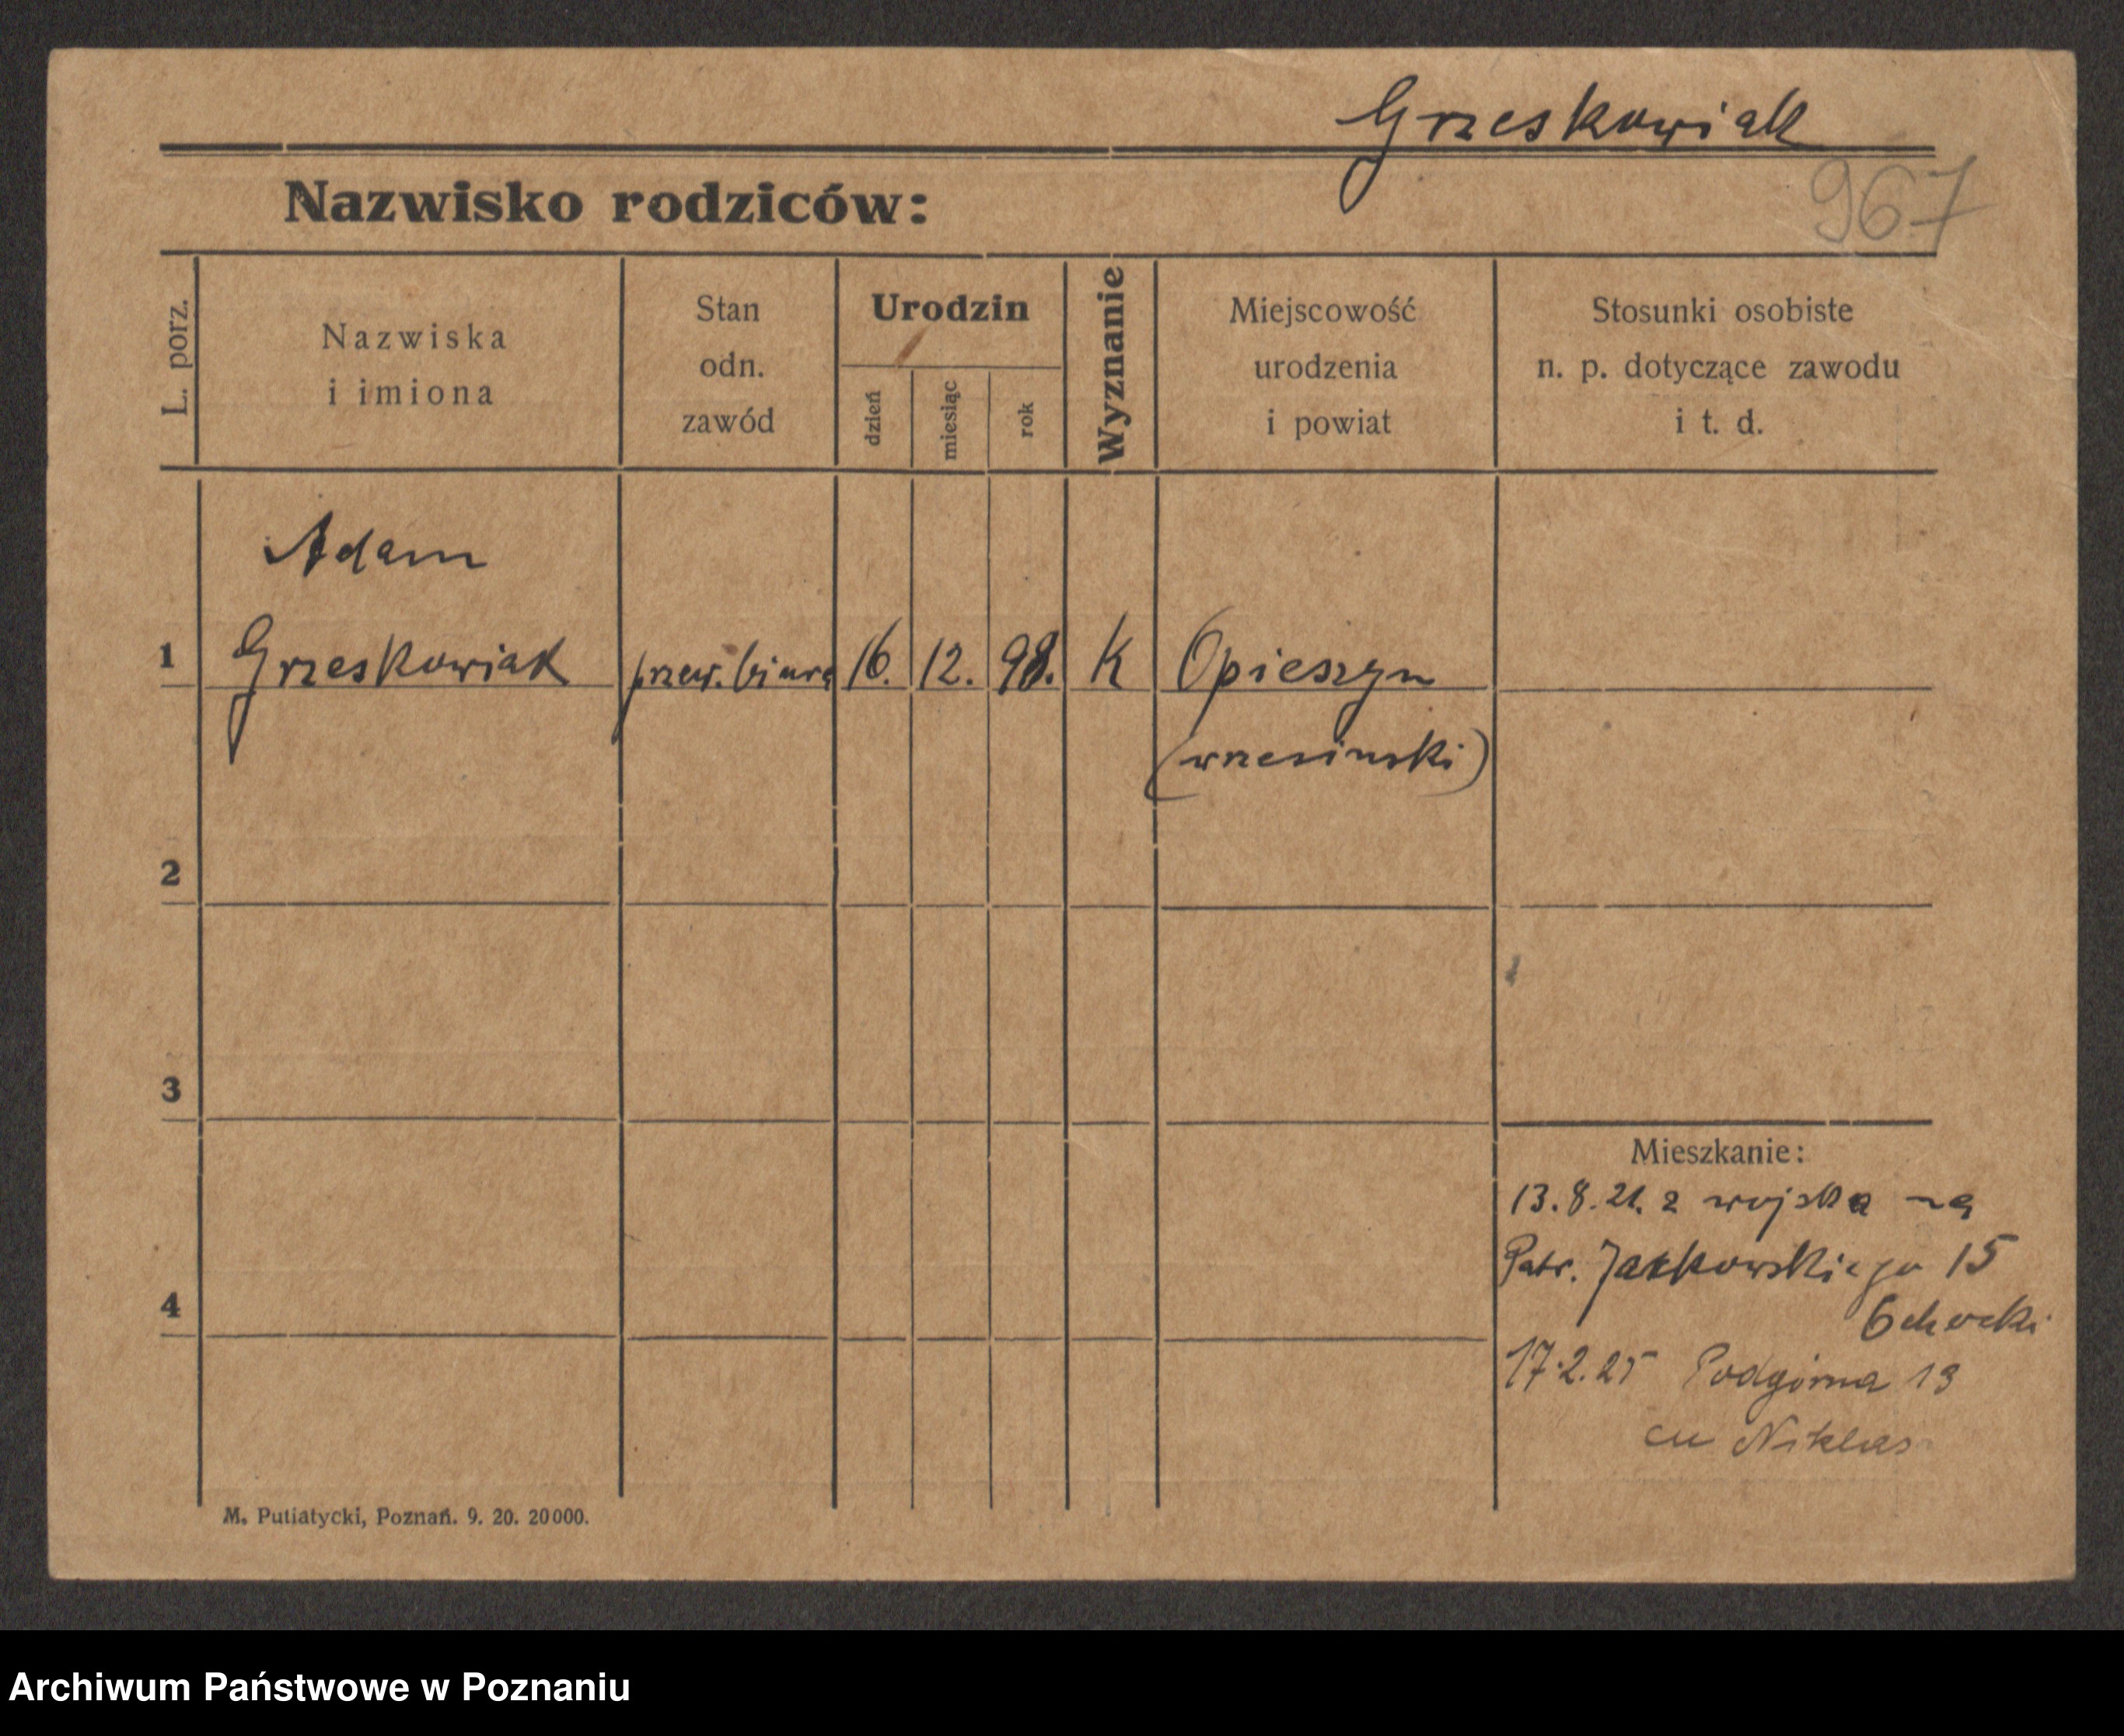 Grzeskowiak
967
Nazwisko rodziców:
L. porz.
Nazwiska
i imiona
Stan
odn.
zawód
Urodzin
dzień
miesiąc
rok
Wyznanie
Miejscowość
urodzenia
i powiat
Stosunki osobiste
n. p. dotyczące zawodu
i t. d.
Adam
1 Grzeskowiak przew. biura 16. 12. 98. K Opieszyn
(wrzesinski)
2
3
Mieszkanie:
13.8.21. z wojska na
Patr. Jackowskiego 15
4
17.2.25 Podgórna 13
Niklas
M. Putiatycki, Poznań. 9. 20. 20000.
Archiwum Państwowe w Poznaniu